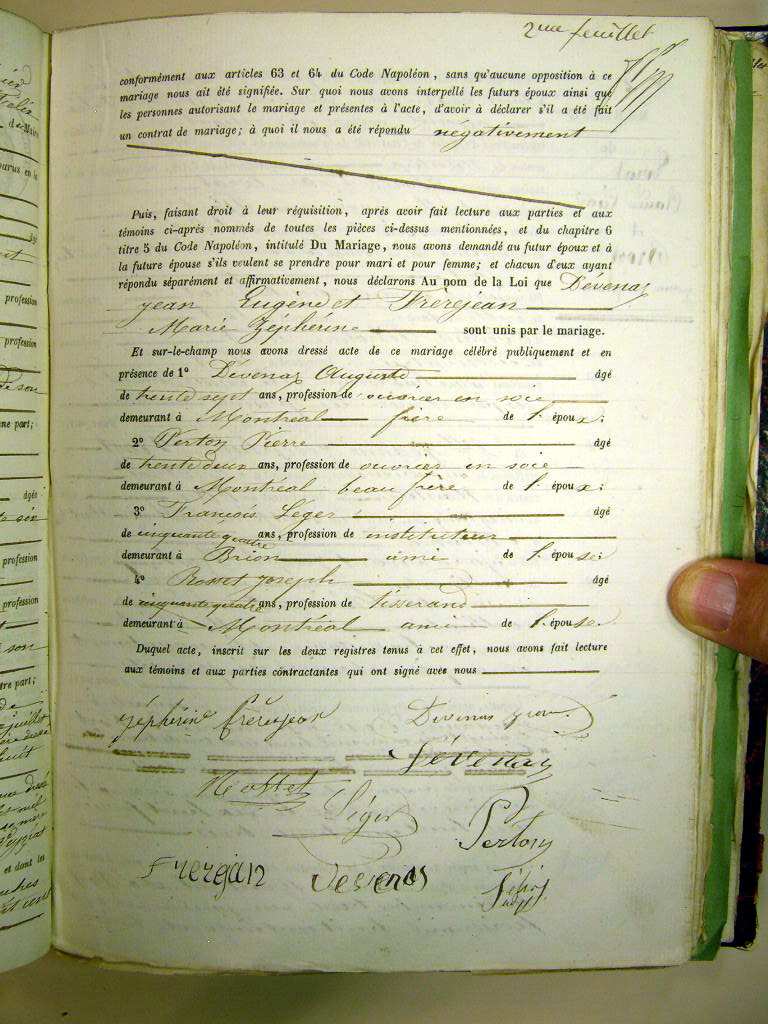 2me feuillet
conformément aux articles 63 et 64 du Code Napoléon, sans qu'aucune opposition à ce
mariage nous ait été signifiée. Sur quoi nous avons interpellé les futurs époux ainsi que
les personnes autorisant le mariage et présentes à l'acte, d'avoir à déclarer s'il a été fait
un contrat de mariage; à quoi il nous a été répondu négativement
Puis, faisant droit à leur réquisition, après avoir fait lecture aux parties et aux
témoins ci-après nommés de toutes les pièces ci-dessus mentionnées, et du chapitre 6
titre 5 du Code Napoléon, intitulé Du Mariage, nous avons demandé au futur époux et à
la future épouse s'ils veulent se prendre pour mari et pour femme; et chacun d'eux ayant
répondu séparément et affirmativement, nous déclarons Au nom de la Loi que Devenaz
jean Eugène et Frèrejean
Marie Zéphérine sont unis par le mariage.
Et sur-le-champ nous avons dressé acte de ce mariage célébré publiquement et en
présence de 1° Dévenaz Auguste âgé
de trente sept ans, profession de ouvrier en soie
demeurant à Montréal frère de l'époux;
2° Pertoy Pierre âgé
de trente deux ans, profession de ouvrier en soie
demeurant à Montréal beau frère de l'époux;
3° François Léger âgé
de cinquante quatre ans, profession de instituteur
demeurant à Brion ami de l'épouse;
4° Rosset joseph âgé
de cinquante quatre ans, profession de tisserand
demeurant à Montréal ami de l'épouse.
Duquel acte, inscrit sur les deux registres tenus à cet effet, nous avons fait lecture
aux témoins et aux parties contractantes qui ont signé avec nous
Zéphérine Frèrejean Devenas
Dévenaz
Rosset
Léger
Pertoy
profession
profession
de son
ne part;
âgé
profession
profession
son
tre part;
juillet
huit
et dont les